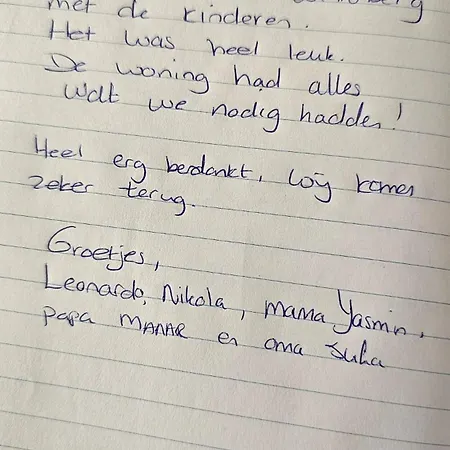 met de kinderen.
Het was heel leuk.
De woning had alles
wat we nodig hadden!
Heel erg bedankt, wij komen
zeker terug.
Groetjes,
Leonardo, Nikola, mama Yasmin,
papa MANAR en oma Suha